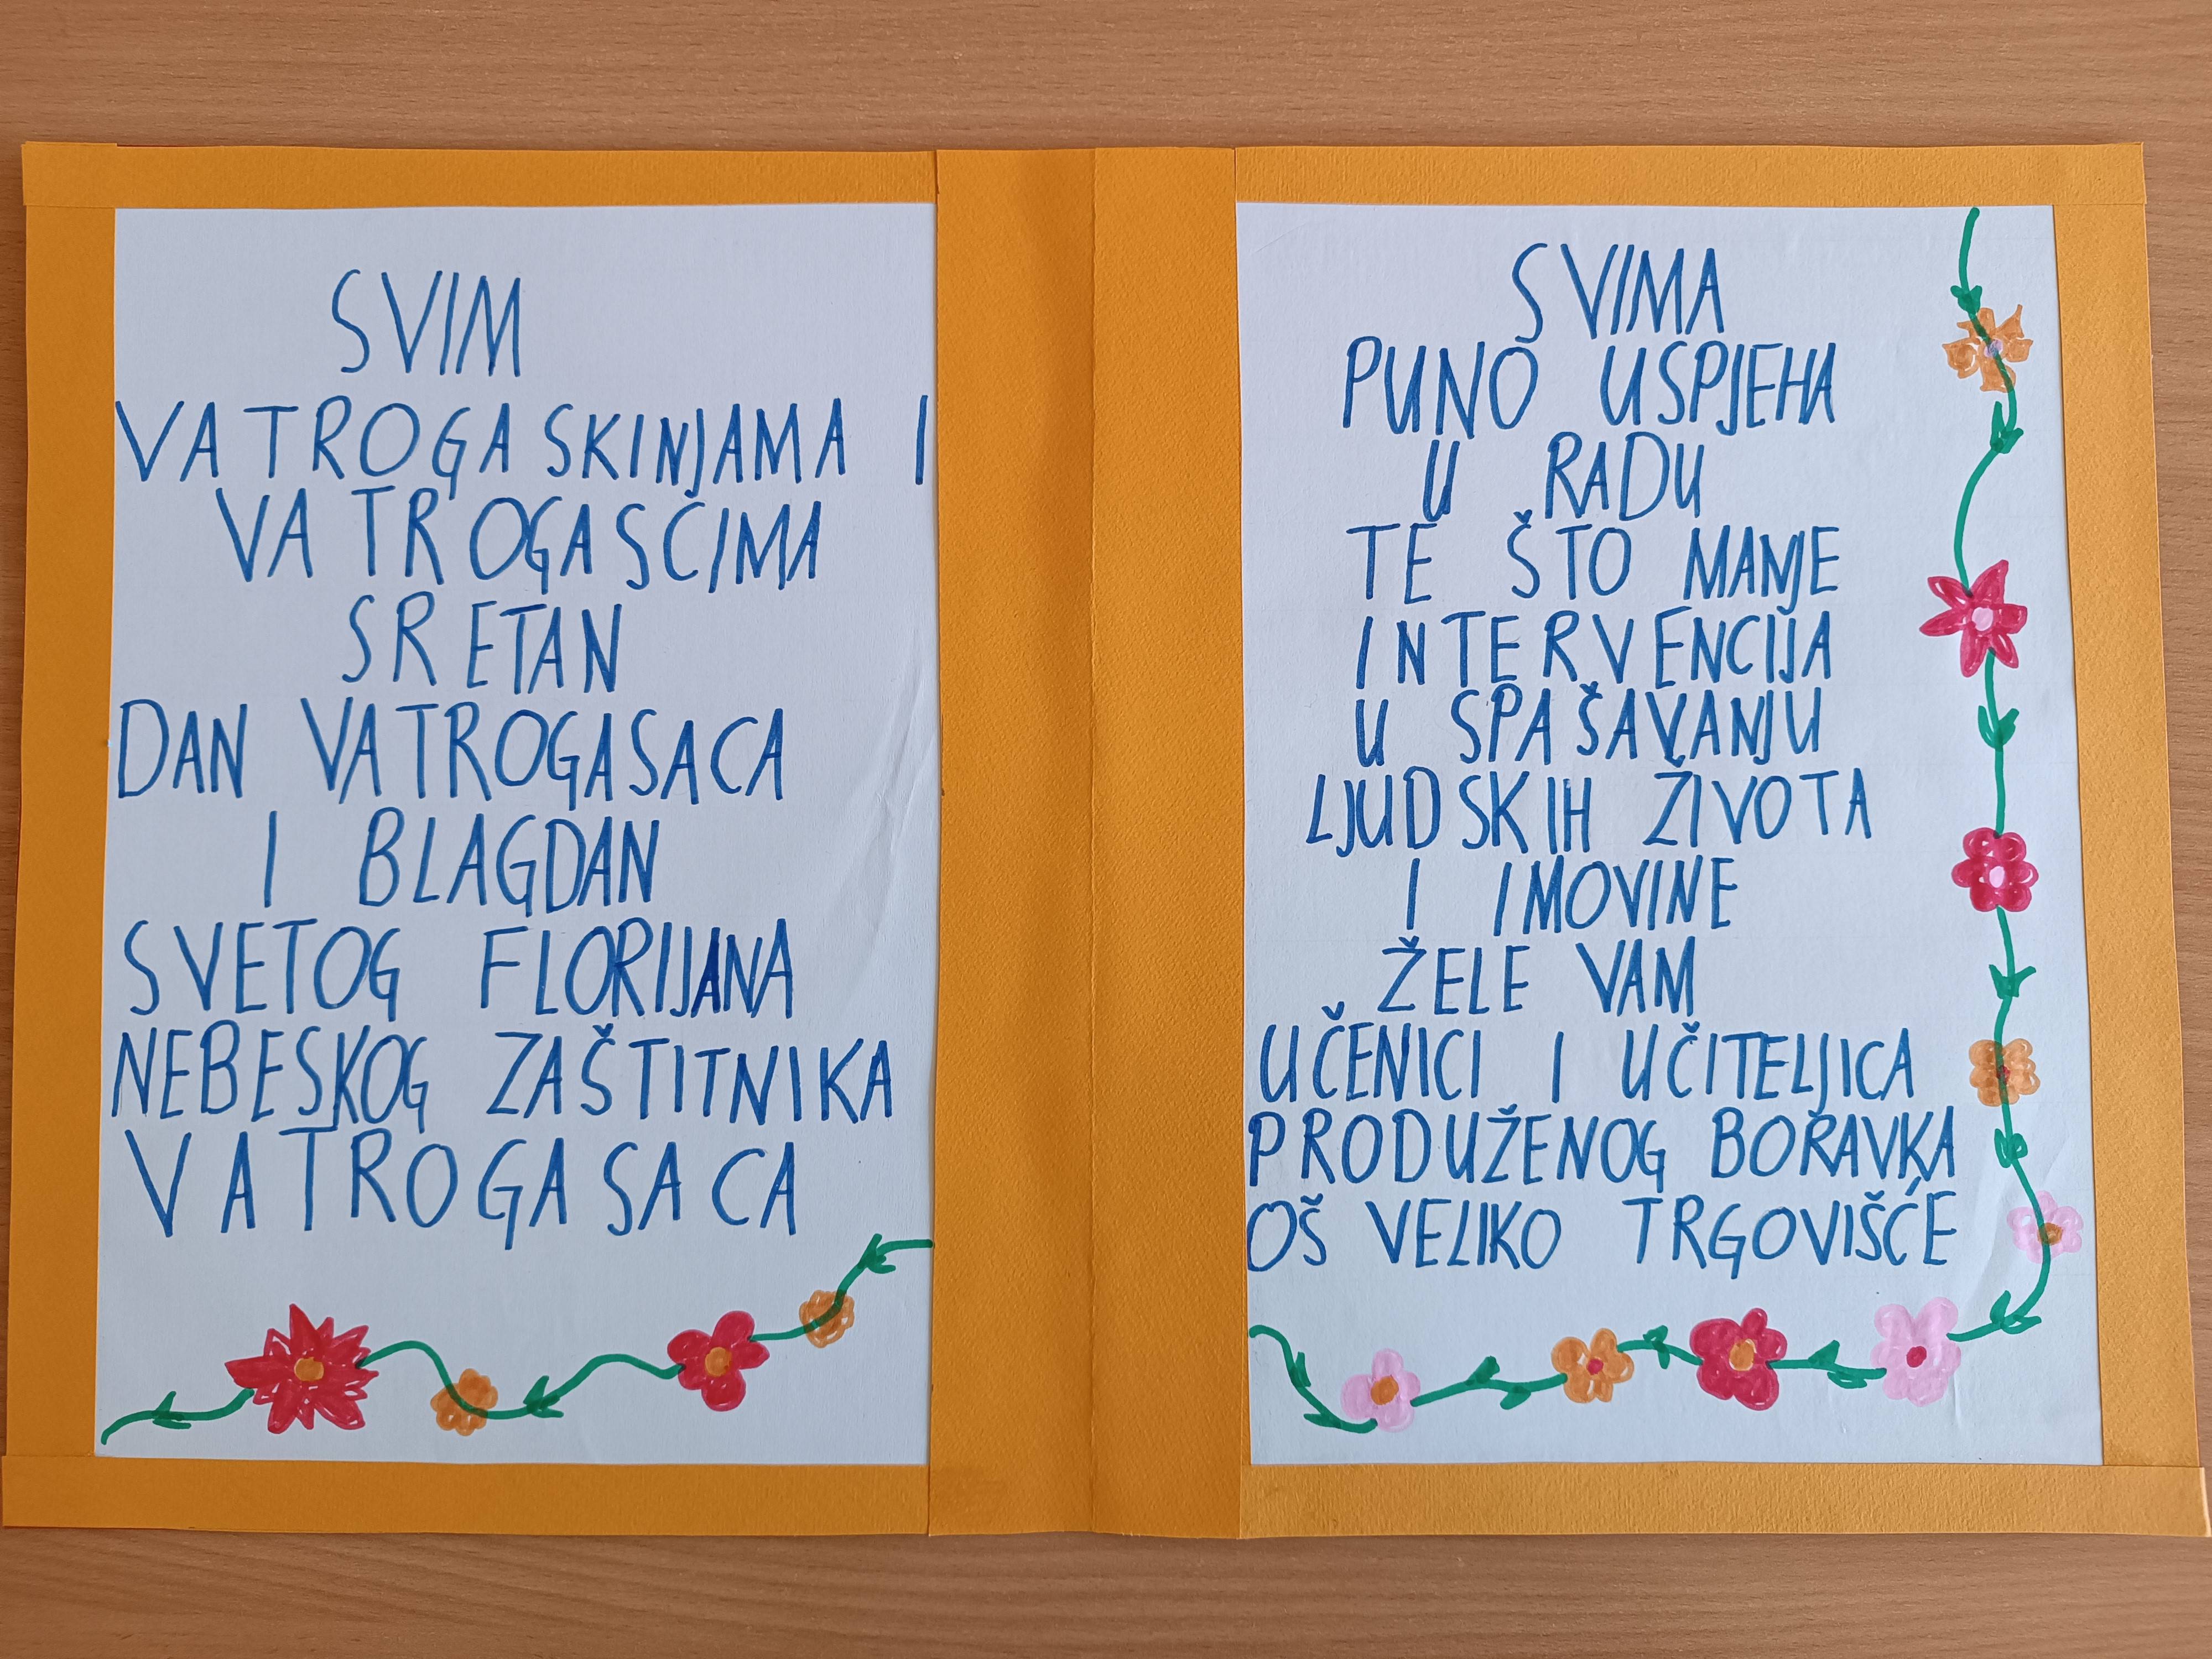 SVIM
VATROGASKINJAMA I
VATROGASCIMA
SRETAN
DAN VATROGASACA
I BLAGDAN
SVETOG FLORIJANA
NEBESKOG ZAŠTITNIKA
VATROGASACA
SVIMA
PUNO USPJEHA
U RADU
TE ŠTO MANJE
INTERVENCIJA
U SPAŠAVANJU
LJUDSKIH ŽIVOTA
I IMOVINE
ŽELE VAM
UČENICI I UČITELJICA
PRODUŽENOG BORAVKA
OŠ VELIKO TRGOVIŠĆE